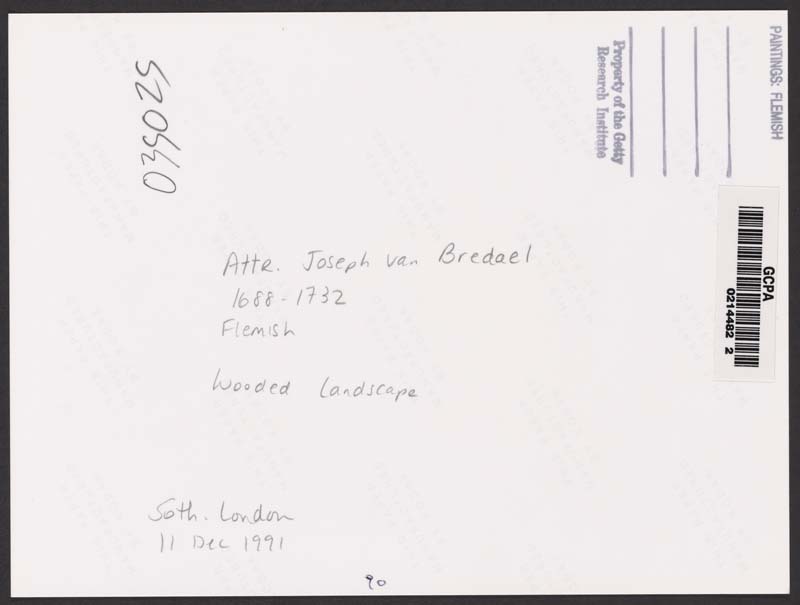 PAINTINGS: FLEMISH
Property of the Getty
Research Institute
GCPA
0214482 2
Attr. Joseph van Bredael
1688-1732
Flemish
Wooded Landscape
Soth. London
11 Dec 1991
90